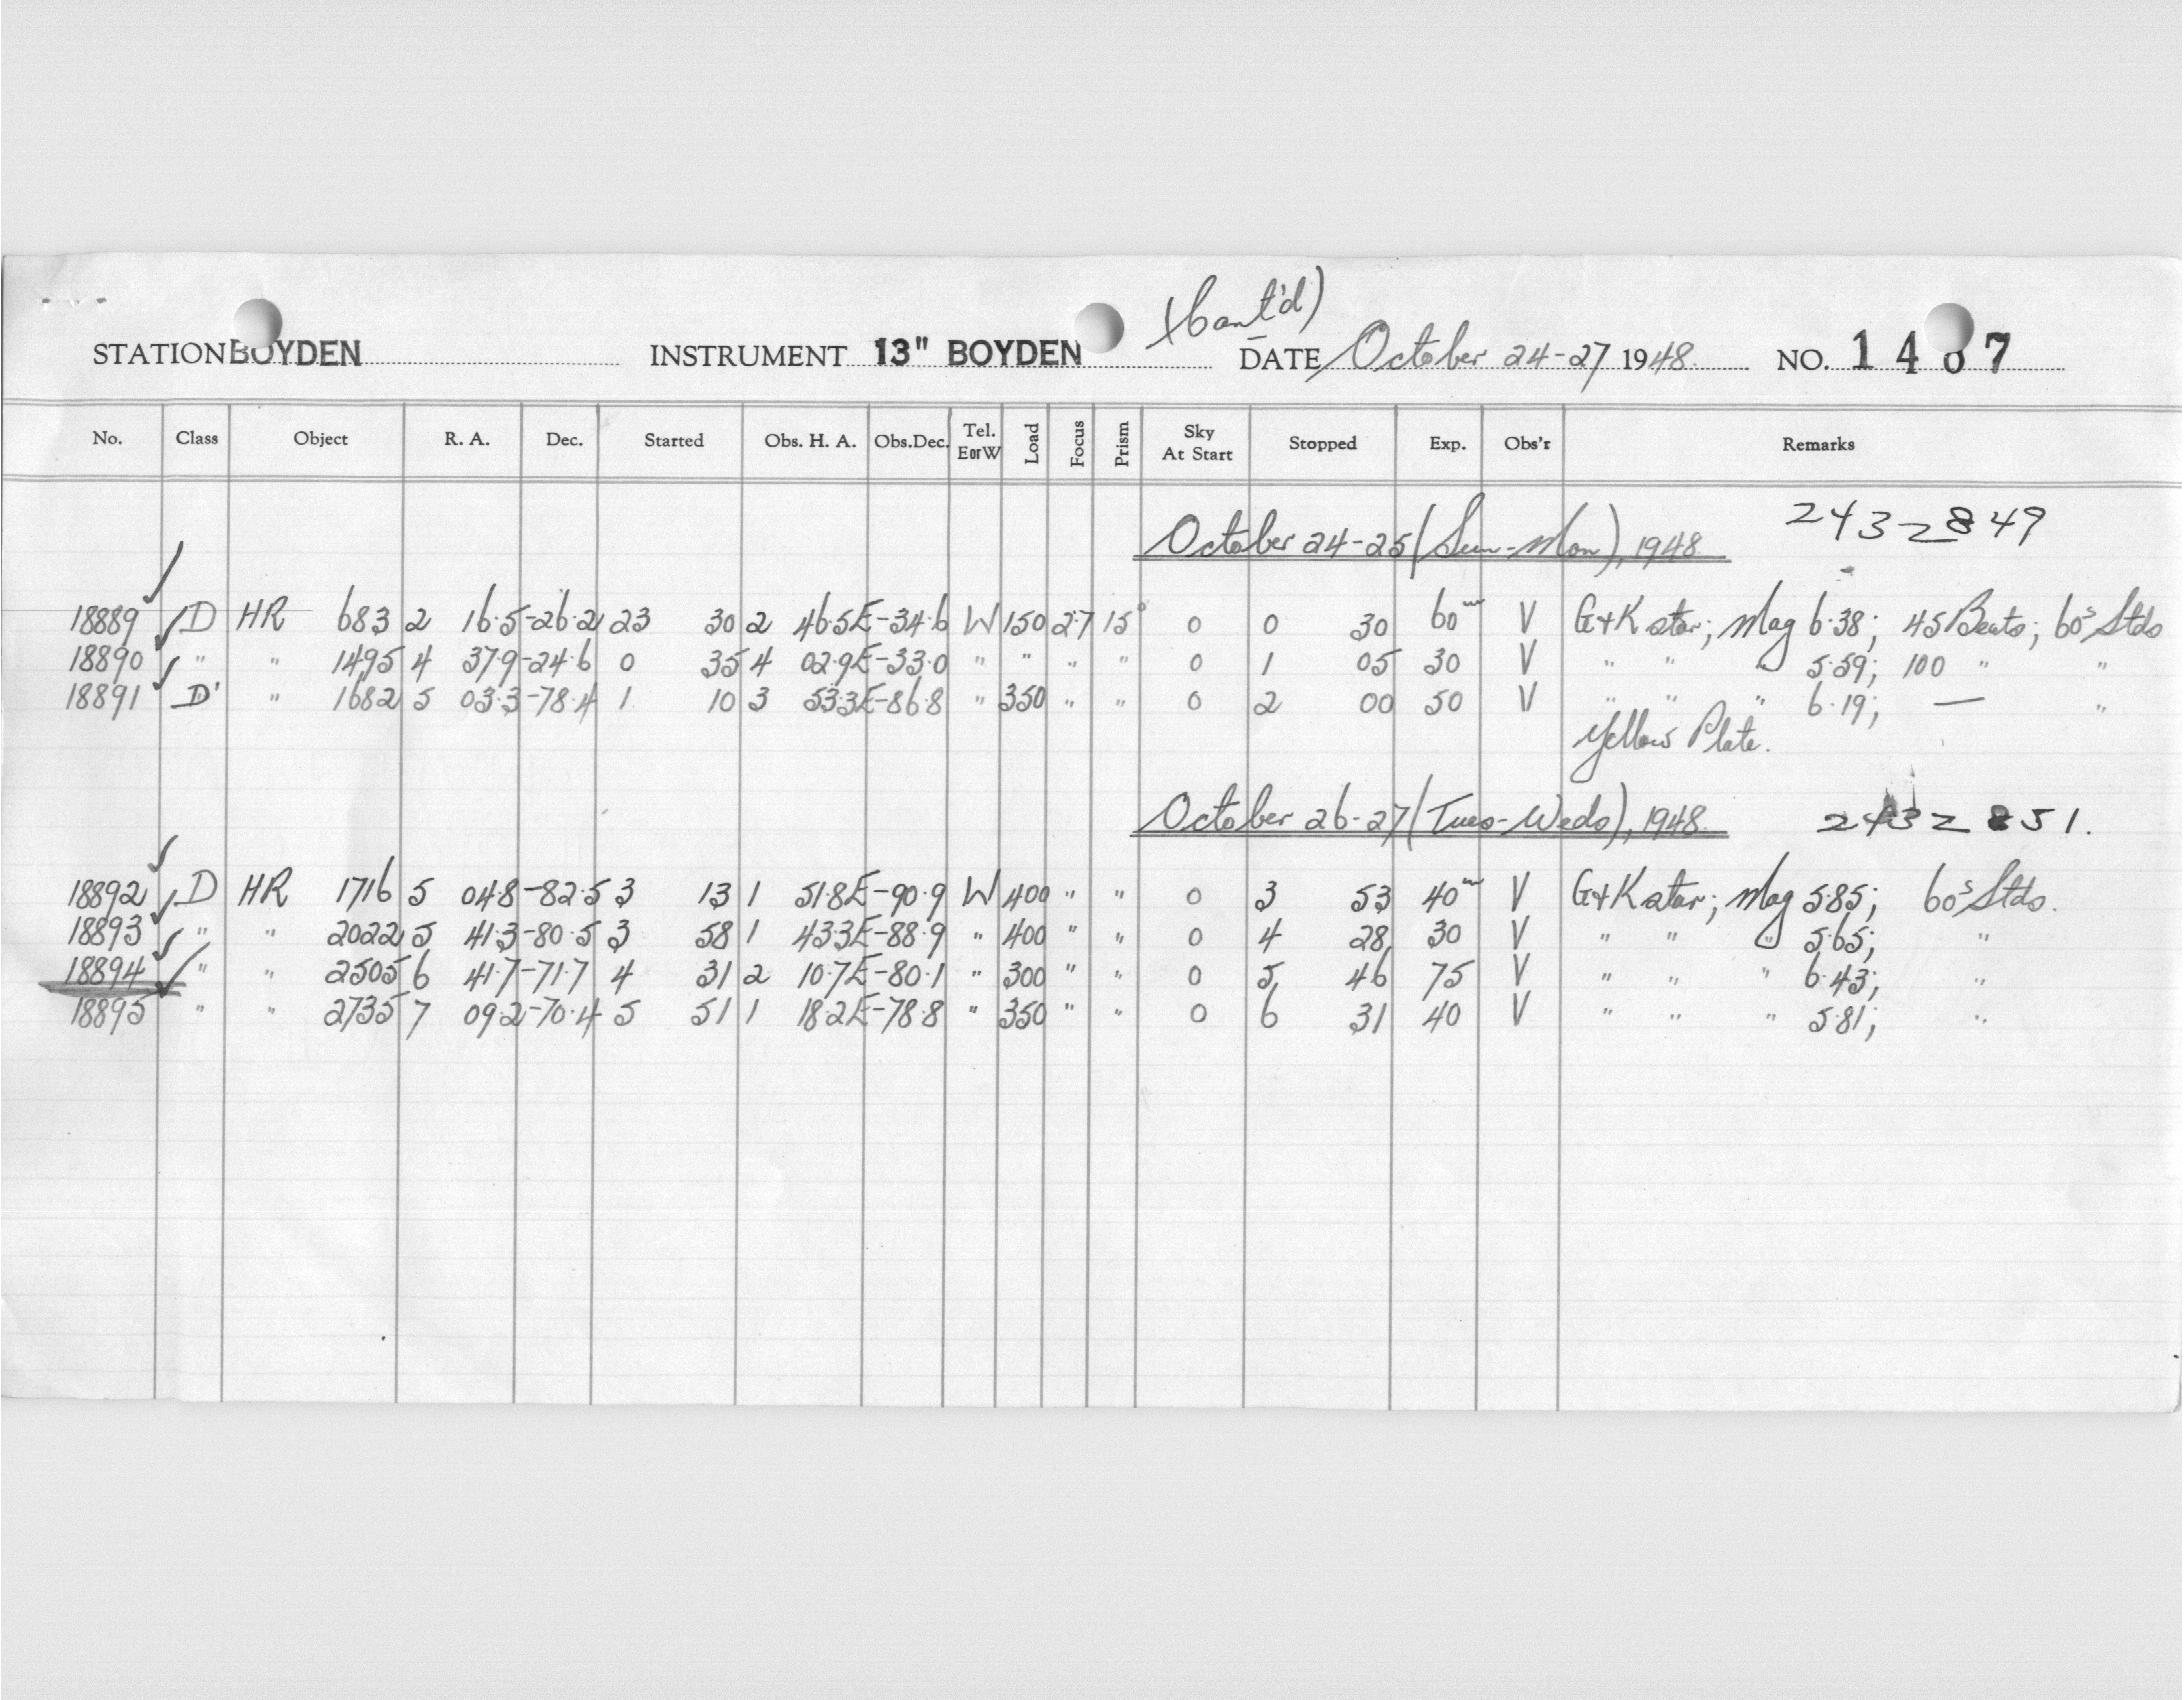 (Cont'd)
STATION BOYDEN INSTRUMENT 13" BOYDEN DATE October 24-27 1948. NO. 1487
No. Class Object R. A. Dec. Started Obs. H. A. Obs.Dec. Tel. E or W Load Focus Prism Sky At Start Stopped Exp. Obs'r Remarks
October 24-25 (Sun-Mon), 1948. 2432849
18889 D HR 683 2 16.5 -26.2 23 30 2 46.5E -34.6 W 150 2.7 15° 0 0 30 60m V G+K star; Mag 6.38; 45 Beats; 60s Stds
18890 " " 1495 4 37.9 -24.6 0 35 4 02.9E -33.0 " " " " 0 1 05 30 V " " " 5.59; 100 " "
18891 D' " 1682 5 03.3 -78.4 1 10 3 53.3E -86.8 " 350 " " 0 2 00 50 V " " " 6.19; — "
Yellow Plate.
October 26-27 (Tues-Weds), 1948. 2432851.
18892 D HR 1716 5 04.8 -82.5 3 13 1 51.8E -90.9 W 400 " " 0 3 53 40m V G+K star; Mag 5.85; 60s Stds.
18893 " " 2022 5 41.3 -80.5 3 58 1 43.3E -88.9 " 400 " " 0 4 28 30 V " " " 5.65; "
18894 " " 2505 6 41.7 -71.7 4 31 2 10.7E -80.1 " 300 " " 0 5 46 75 V " " " 6.43; "
18895 " " 2735 7 09.2 -70.4 5 51 1 18.2E -78.8 " 350 " " 0 6 31 40 V " " " 5.81; "